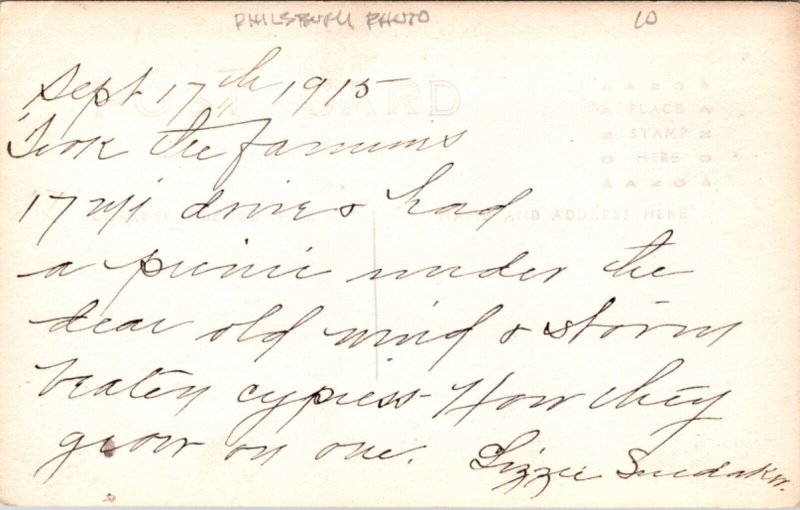 PHILSBURY PHOTO 10
Sept 17th 1915
POST CARD
AZO
PLACE
STAMP
HERE
AZO
Took the famous
17 mi drive & had
NAME AND ADDRESS HERE
a picnic under the
dear old wind & storm
beaten cypress- How they
grow on one. Lizzie Snedaker.